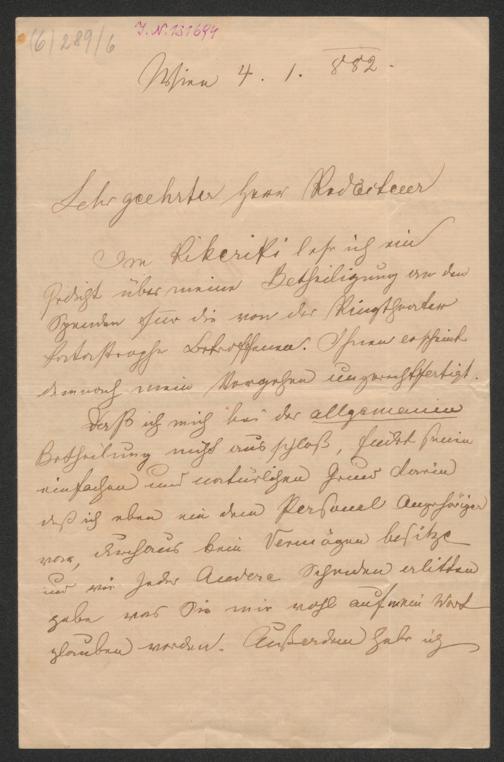 (6) 289/6
J.N. 131694
Wien 4. 1. 882.
Sehr geehrter Herr Redacteur
Im Kikeriki lese ich ein
Gedicht über meine Betheiligung an den
Spenden für die von der Ringtheater
katastrophe Betroffenen. Ihnen erscheint
demnach mein Vorgehen ungerechtfertigt.
Daß ich mich bei der allgemeinen
Betheilung nicht ausschloß, findet seinen
einfachen und natürlichen Grund darin
daß ich eben ein dem Personal Angehöriger
war, durchaus kein Vermögen besitze
und wie jeder Andere Schaden erlitten
habe was Sie mir wohl auf mein Wort
glauben werden. Außerdem habe ich